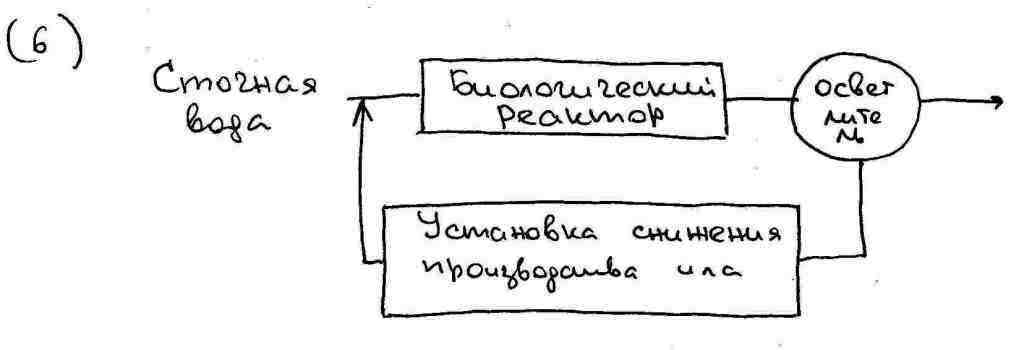 (6)
Сточная
вода
Биологический
реактор
освет
лите
ль
Установка снижения
производства ила